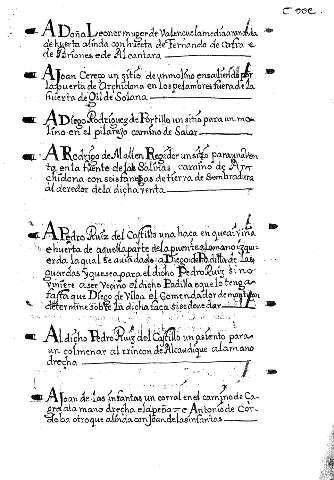 A Doña Leonor muger de Valençuela media aranzada
de huerta alinda con huerta de Fernando de
de Briones e de Alcantara
A Joan Cerezo un sitio de un molino en saliendo por
la puerta de Archidona en los pelambres fuera de la
huerta de Gil de Solana
A Diego Rodriguez de Portillo un sitio para un mo-
lino en el pilarejo camino de Salar
A Rodrigo de Alallen Regidor un sitio para una ven
ta en la fuente de las Salinas camino de Ar-
chidona con seis fanegas de tierra de Sembradura
al derredor de la dicha venta
A Pedro Ruiz del Castillo una haca en que ai viña
e huerta de aquella parte de la puente a la mano izqui-
erda la qual se avia dado a Diego de Padilla de las
guardas y questo para el dicho Pedro Ruiz si no
viniere a ser vezino el dicho Padilla e que lo tenga
fasta que Diego de Ulloa el Comendador de
determine sobre la dicha haca si se deve dar
Al dicho Pedro Ruiz del Castillo un asiento para
un colmenar al rincon de Alcaudique a la mano
drecha
A Joan de las infantas un corral en el camino de
a la mano drecha e la peña e Antonio de Cor-
doba otro que alinda con Joan de las infantas